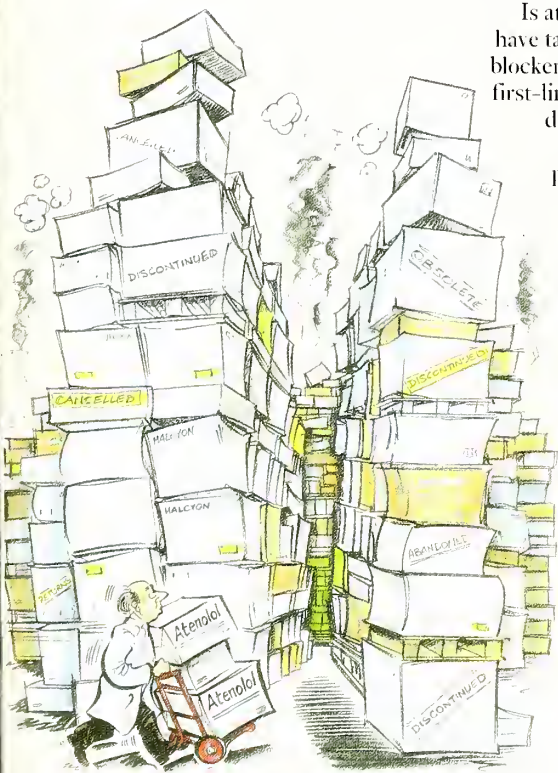 Is at
have ta
blocker
first-lin
d
DISCONTINUED
OBSOLETE
DISCONTINUED
CANSELLED
HALCYON
HALCYON
Atenolol
Atenolol
DISCONTINUED